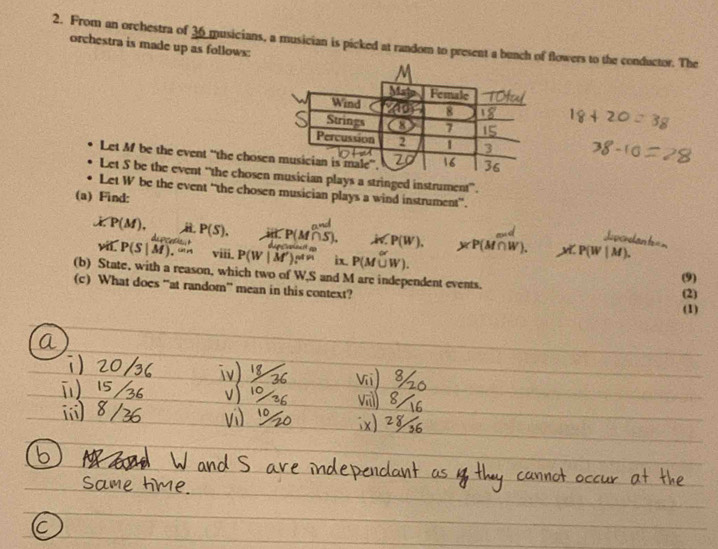 2. From an orchestra of 36 musicians, a musician is picked at random to present a bunch of flowers to the conductor. The
orchestra is made up as follows:
M
Male Female Total
W Wind 10 8 18
S Strings 8 7 15
Percussion 2 1 3
Total 20 16 36
18 + 20 = 38
38 - 10 = 28
• Let M be the event "the chosen musician is male".
• Let S be the event "the chosen musician plays a stringed instrument".
• Let W be the event "the chosen musician plays a wind instrument".
(a) Find:
and and
i. P(M), ii. P(S), iii. P(M∩S), iv. P(W), v. P(M∩W), vi. P(W | M),
or
vii. P(S | M), viii. P(W | M'), ix. P(M∪W).
(9)
(b) State, with a reason, which two of W,S and M are independent events.
(2)
(c) What does "at random" mean in this context?
(1)
a
i) 20/36 iv) 18/36 vii) 8/20
ii) 15/36 v) 10/36 viii) 8/16
iii) 8/36 vi) 10/20 ix) 28/36
b W and S are independant as they cannot occur at the
same time.
c